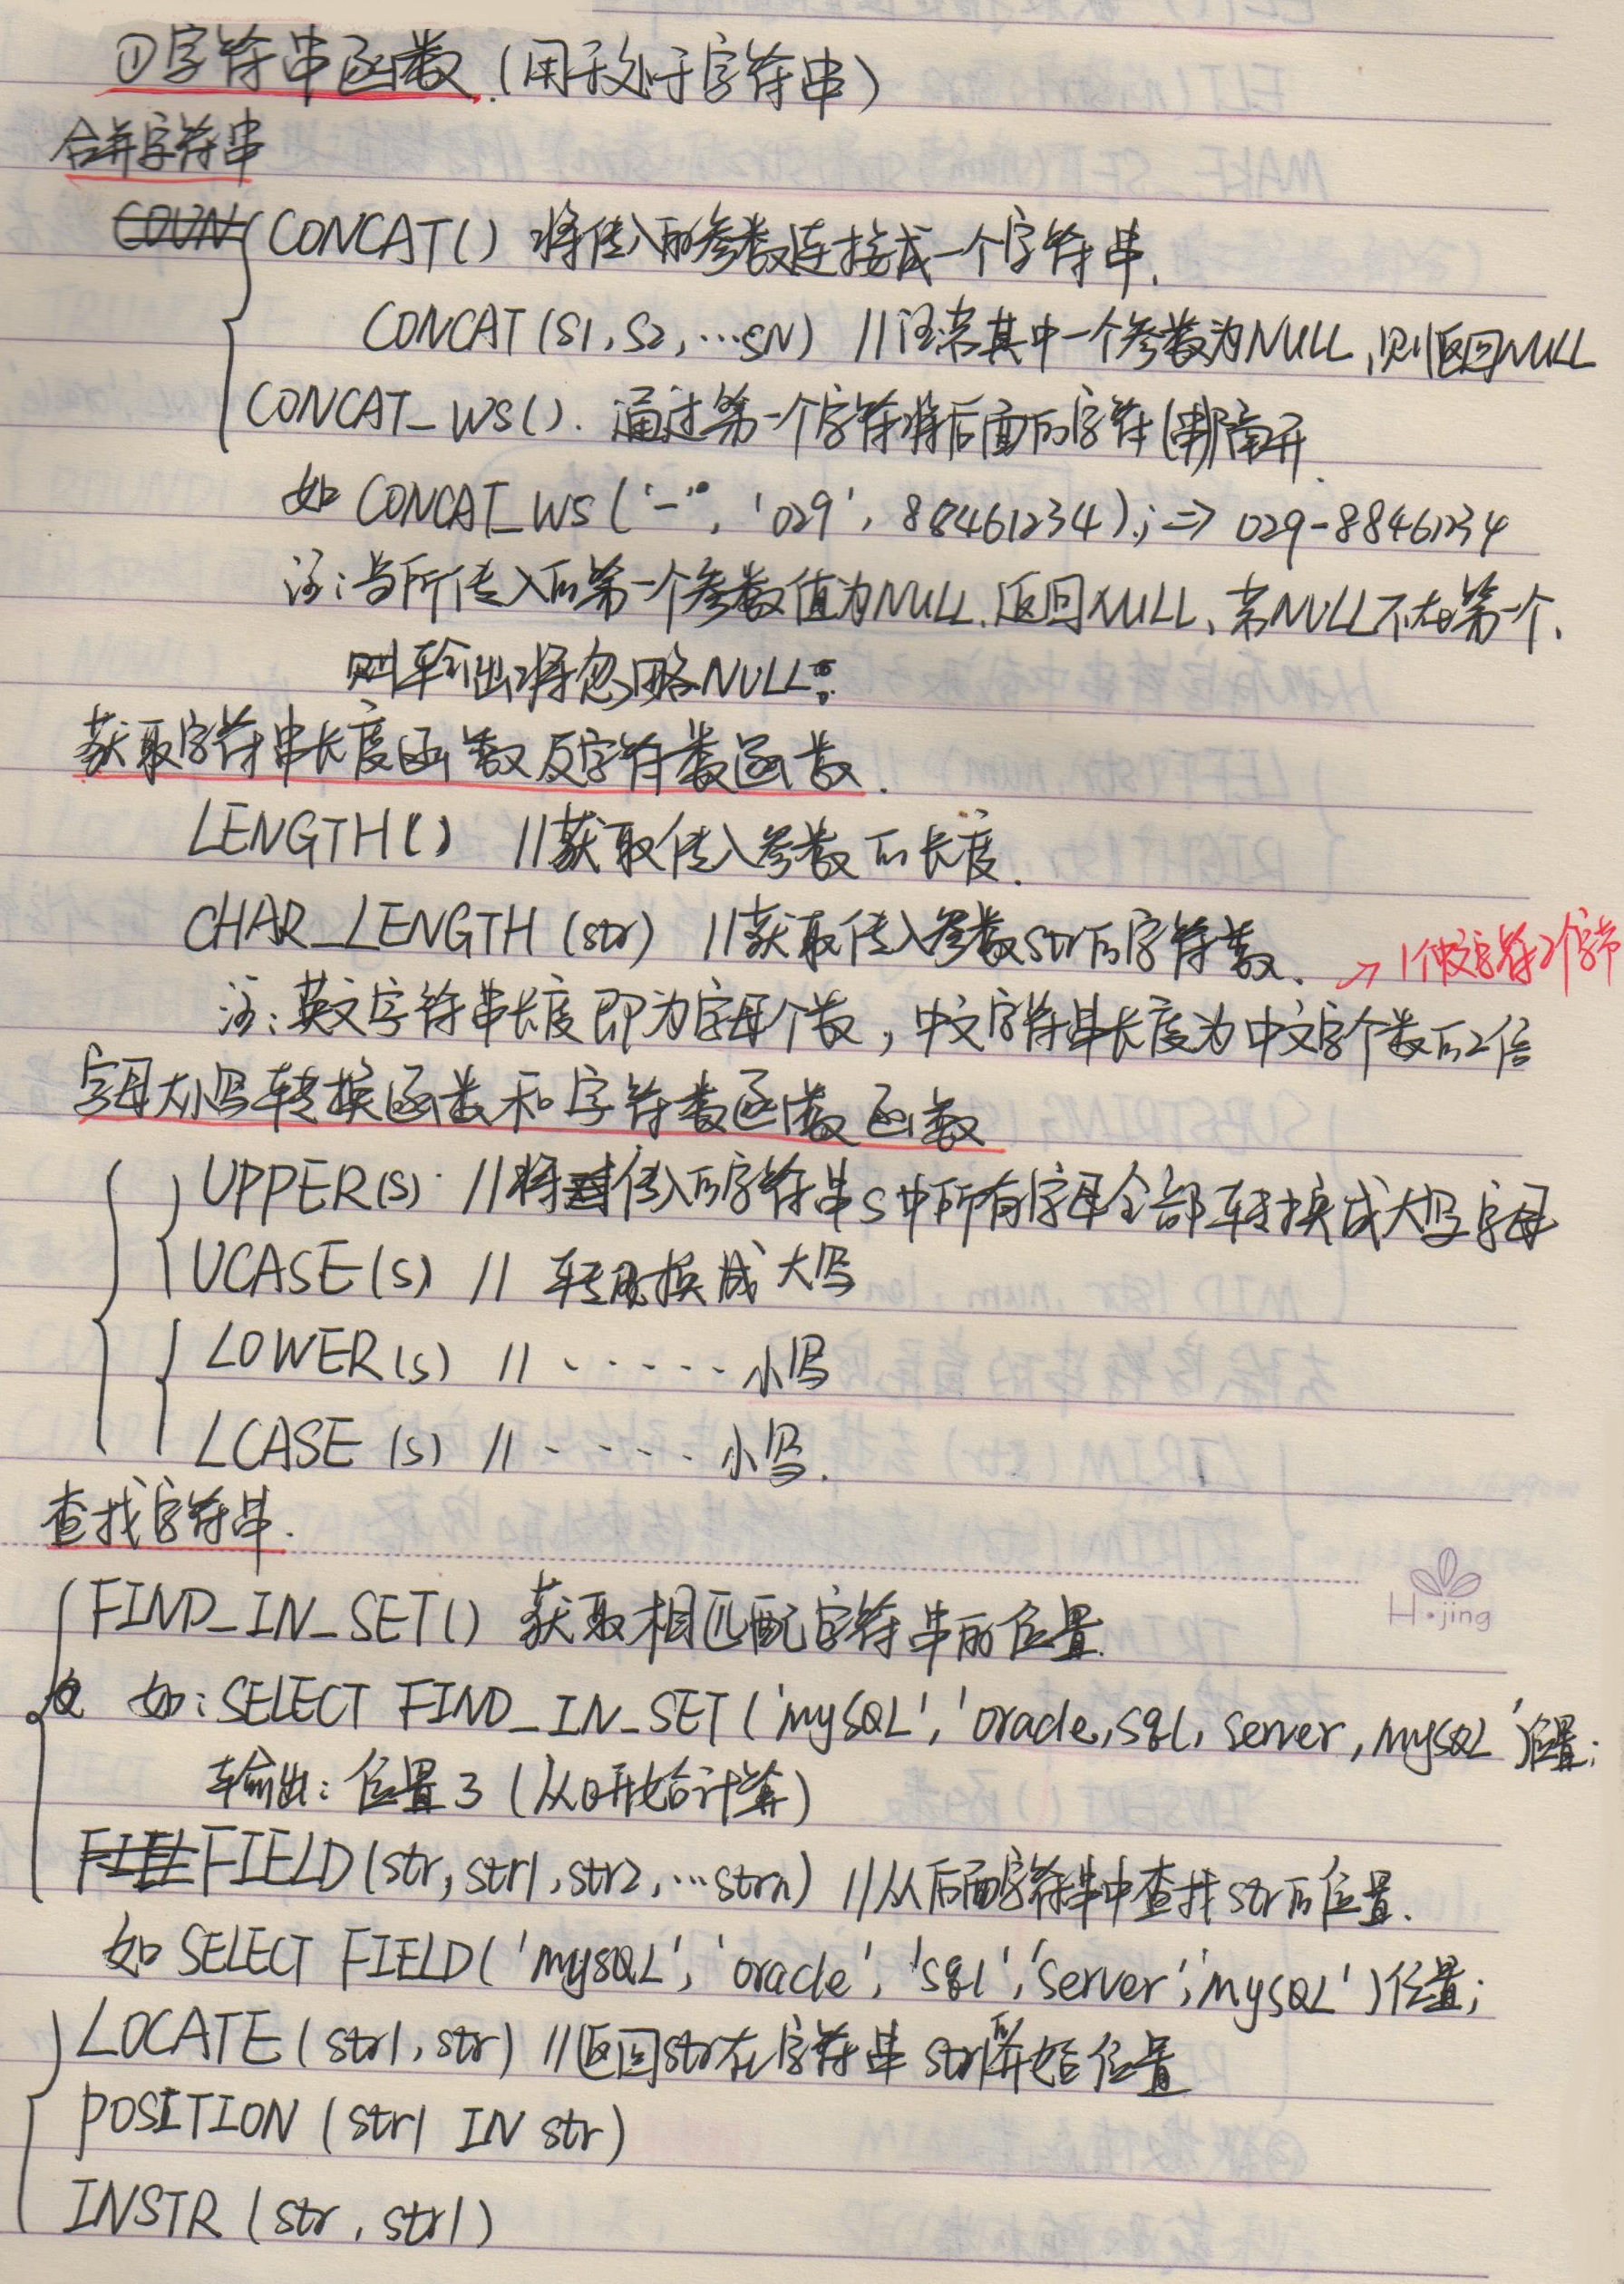 ①字符串函数.(用于处于字符串)
合并字符串
CONCAT() 将传入的参数连接成一个字符串.
CONCAT(S1,S2,…SN) //注若其中一个参数为NULL,则返回NULL
CONCAT_WS(). 通过第一个字符将后面的字符(串)隔开.
如 CONCAT_WS('-', '029', 88461234); => 029-88461234
注:当所传入的第一个参数值为NULL.返回NULL、若NULL不在第一个.
则输出将忽略NULL.
获取字符串长度函数及字符数函数.
LENGTH() //获取传入参数的长度.
CHAR_LENGTH(str) //获取传入参数str的字符数. →1个中文字符2个字节
注:英文字符串长度即为字母个数,中文字符串长度为中文字个数的2倍
字母大小写转换函数和字符数函数函数
UPPER(s). //将传入的字符串s中所有字母全部转换成大写字母
UCASE(s) // 转换成大写
LOWER(s) // ······小写
LCASE(s) // ·····小写.
查找字符串.
FIND_IN_SET() 获取相匹配字符串的位置.
H·jing
如:SELECT FIND_IN_SET('mySQL','oracle,sql,server,mySQL')位置;
输出:位置3(从0开始计算)
FIELD(str,str1,str2,…strn) //从后面字符串中查找str的位置.
如 SELECT FIELD('mySQL','oracle','sql','server','mySQL')位置;
LOCATE(str1,str) //返回str在字符串str的开始位置
POSITION(str1 IN str)
INSTR(str,str1)